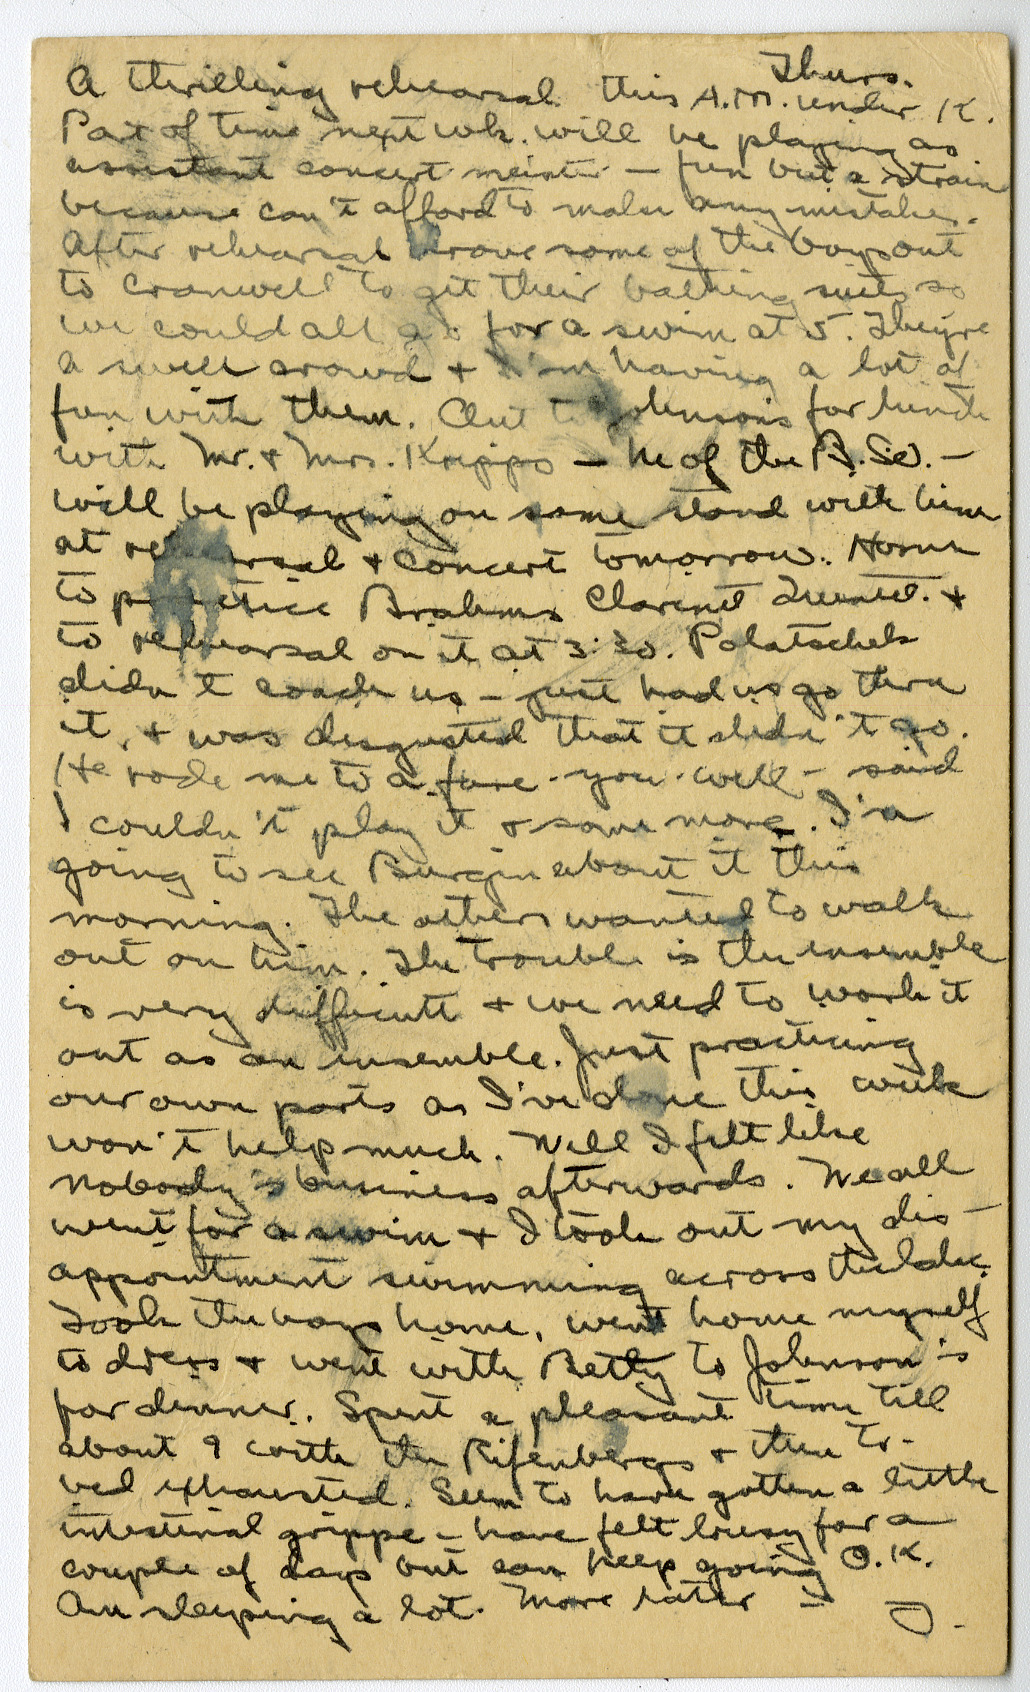 Thurs.
A thrilling rehearsal this A.M. under K.
Part of time next wk. will be playing as
assistant concert meister – fun but a strain
because can't afford to make any mistakes.
After rehearsal drove some of the boys out
to Cranwell to get their bathing suits so
we could all go for a swim at 5. They're
a swell crowd + I'm having a lot of
fun with them. Out to Johnson's for lunch
with Mr. + Mrs. Kripps – he of the
will be playing on same stand with him
at rehearsal + concert tomorrow. Home
to practice Brahms Clarinet Quintet. +
to rehearsal on it at 3:30. Polatschek
didn't coach us – just had us go thru
it, + was disgusted that it didn't go.
He rode me to a fare-you-well – said
I couldn't play it + some more. I'm
going to see Burgin about it this
morning. The others wanted to walk
out on him. The trouble is the ensemble
is very difficult + we need to work it
out as an ensemble. Just practicing
our own parts as I've done this week
won't help much. Well I felt like
nobody's business afterwards. We all
went for a swim + I took out my dis-
appointment swimming across the lake.
Took the boys home, went home myself
to dress + went with Betty to Johnson's
for dinner. Spent a pleasant time till
about 9 with the Rifenbergs + then to
bed exhausted. Seem to have gotten a little
intestinal grippe – have felt lousy for a
couple of days but can keep going O.K.
Am sleeping a lot. More later –
J.